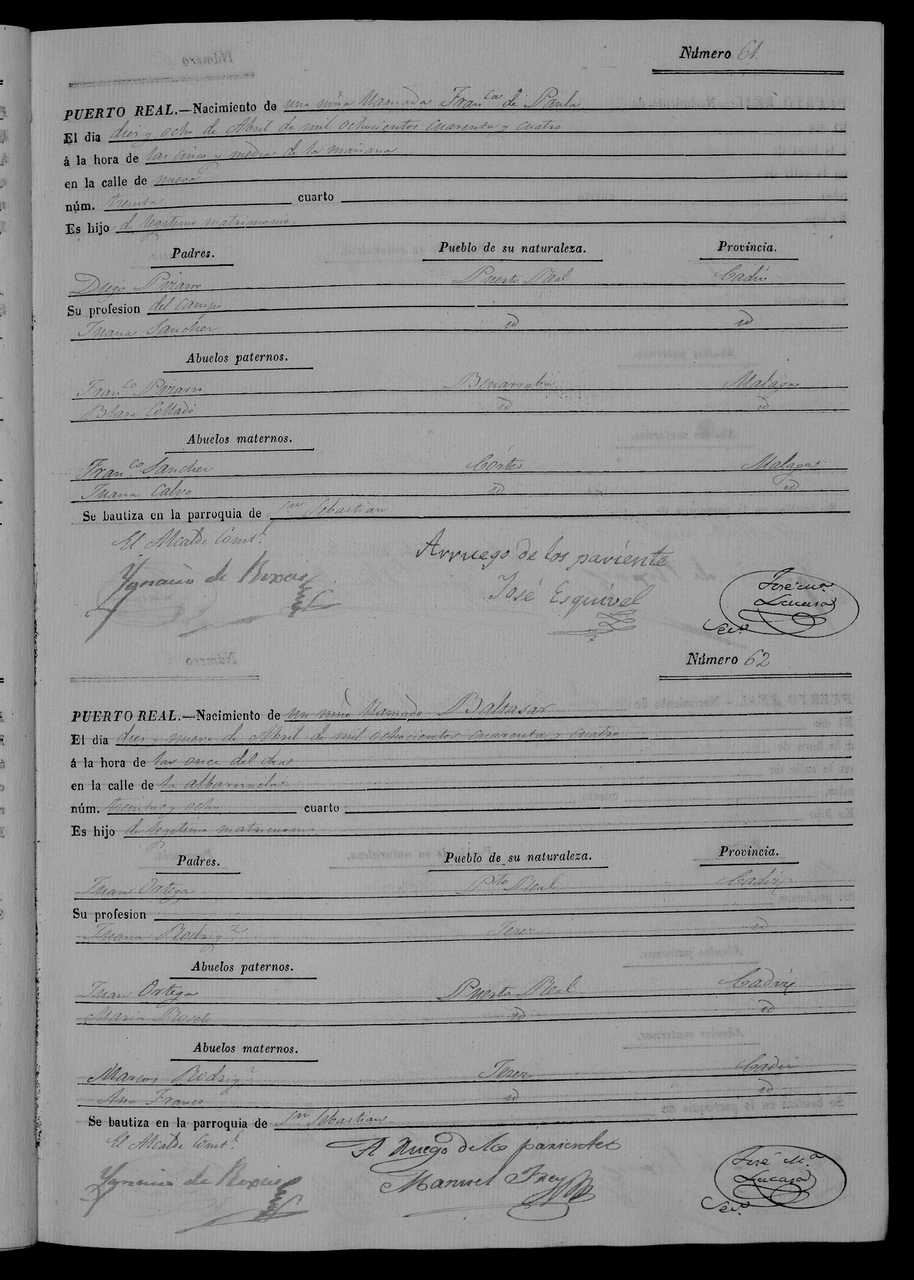 Número 61.
PUERTO REAL.—Nacimiento de una niña llamada Fran.ca de Paula
El dia diez y ocho de Abril de mil ochocientos cuarenta y cuatro
á la hora de las cinco y media de la mañana
en la calle de nueva
núm. treinta cuarto
Es hijo de legitimo matrimonio
Padres. Pueblo de su naturaleza. Provincia.
Diego Pizarro Puerto Real Cadiz
Su profesion del campo
Juana Sanchez id id
Abuelos paternos.
Fran.co Pizarro Malaga
Collado id id
Abuelos maternos.
Fran.co Sanchez Cortes Malaga
Juana Calvo id id
Se bautiza en la parroquia de San Sebastian
El Alcalde Const.l
Arruego de los pariente
Ygnacio de
José Esquivel
José M.a
Lucasa
Sec.o
Número 62
PUERTO REAL.—Nacimiento de un niño llamado Baltasar
El dia diez y nueve de Abril de mil ochocientos cuarenta y cuatro
á la hora de las once del dia
en la calle de la
núm. treinta y ocho cuarto
Es hijo de legitimo matrimonio
Padres. Pueblo de su naturaleza. Provincia.
Juan Ortega Pto Real Cadiz
Su profesion
Juana Rodrig.z Jerez id
Abuelos paternos.
Juan Ortega Puerto Real Cadiz
Maria id id
Abuelos maternos.
Marcos Rodrig.z Jerez Cadiz
Ana id id
Se bautiza en la parroquia de San Sebastian
El Alcalde Const.l
A Ruego de los parientes
Ygnacio de
Manuel
José M.a
Lucasa
Sec.o